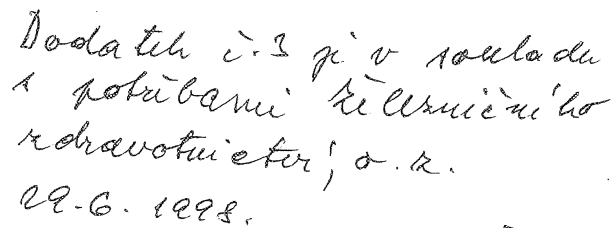 Dodatek č.3 je v souladu
s potřebami železničního
zdravotnictví, o.z.
29.6.1998.